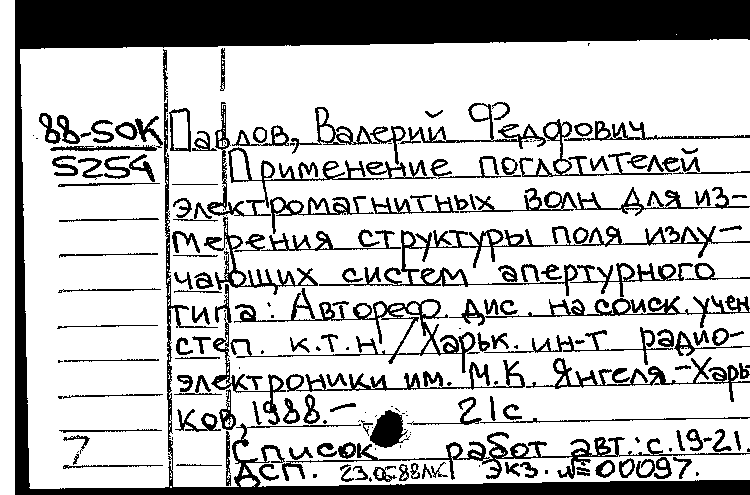 88-50К Павлов, Валерий Федорович
5254 Применение поглотителей
электромагнитных волн для из-
мерения структуры поля излу-
чающих систем апертурного
типа: Автореф. дис. на соиск. учен
степ. к.т.н. / Харьк. ин-т радио-
электроники им. М.К. Янгеля.-Харь
ков, 1988.- 21с.
7 Список работ авт.: с.19-21.
ДСП. 23.05.88 экз. № 00097.